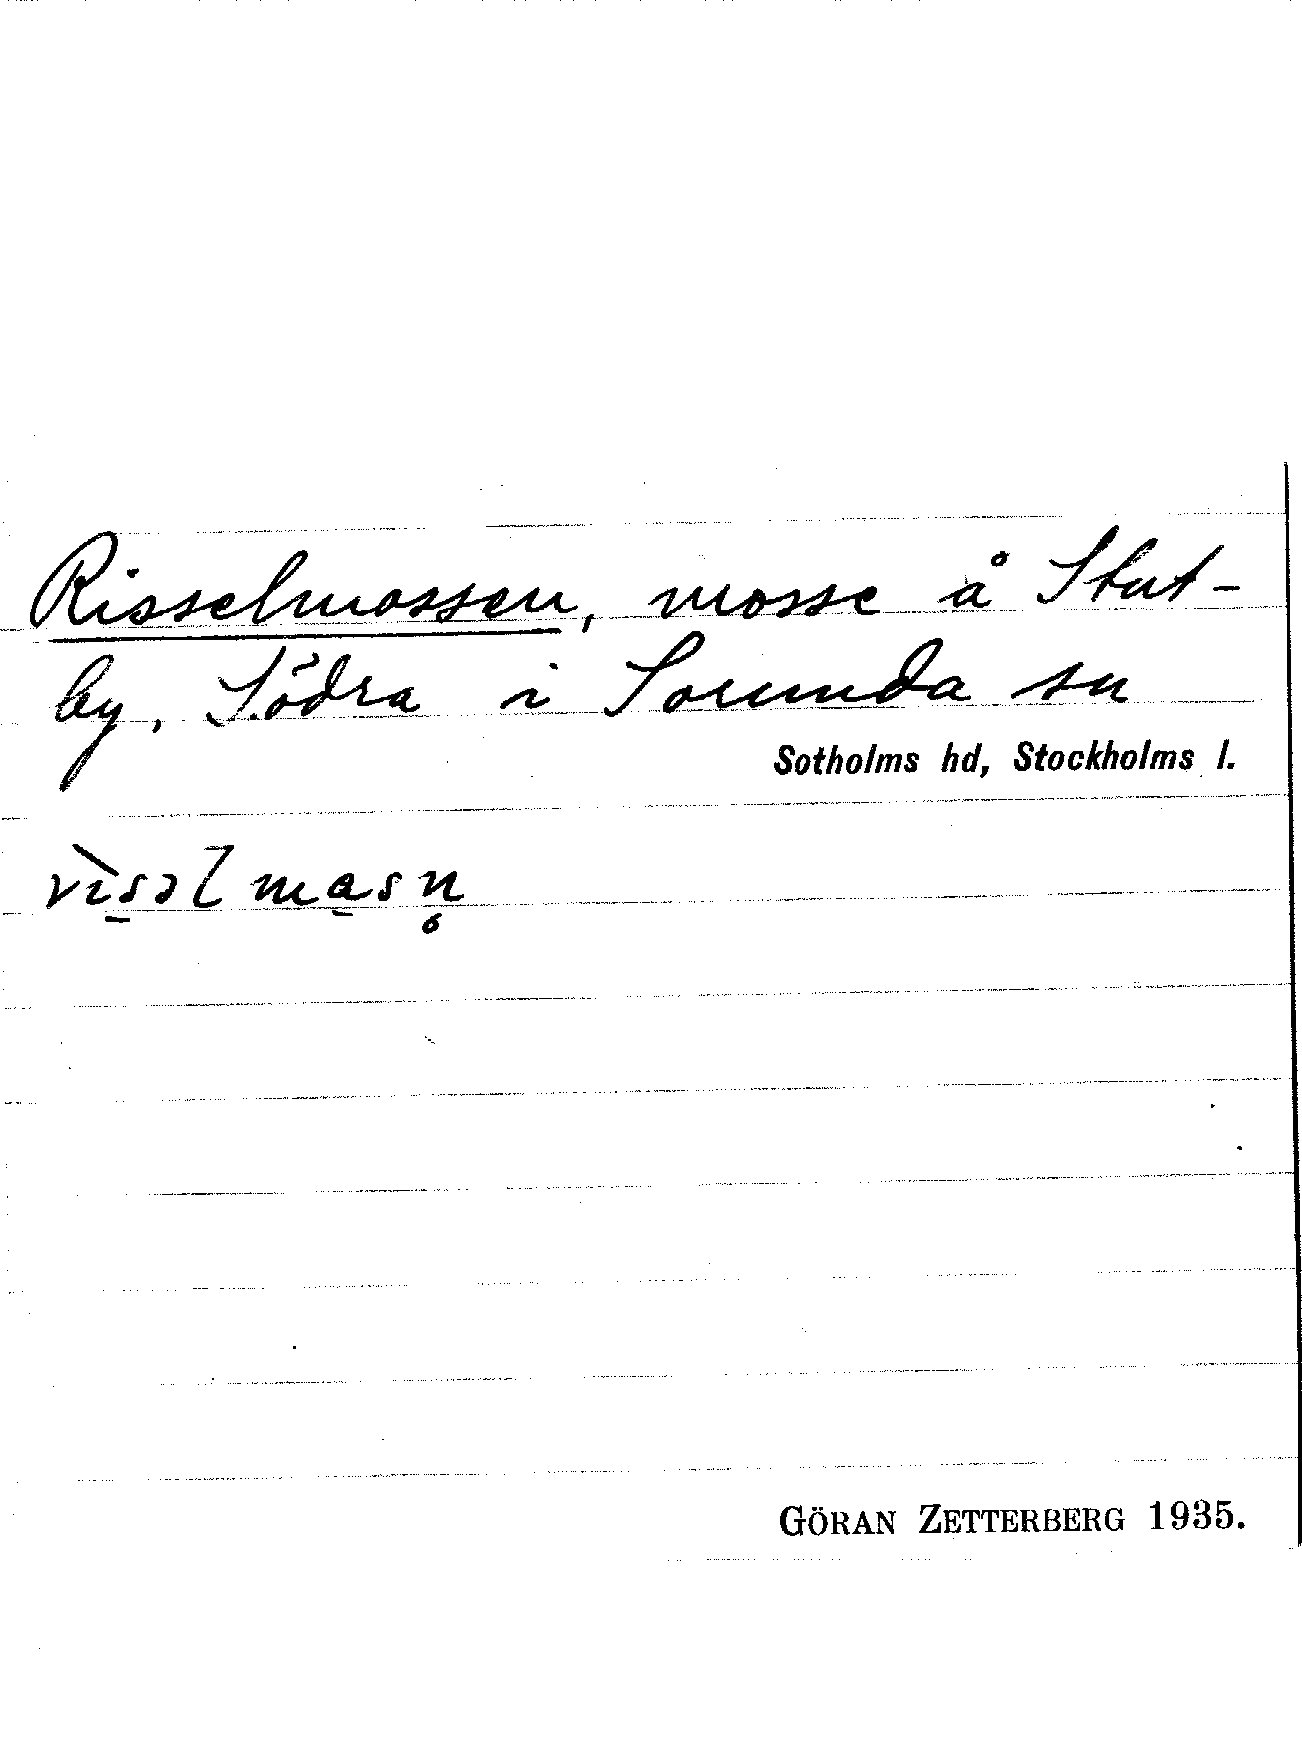 Risselmossen, mosse å Stut-
by, Södra i Sorunda sn
Sotholms hd, Stockholms l.
GÖRAN ZETTERBERG 1935.